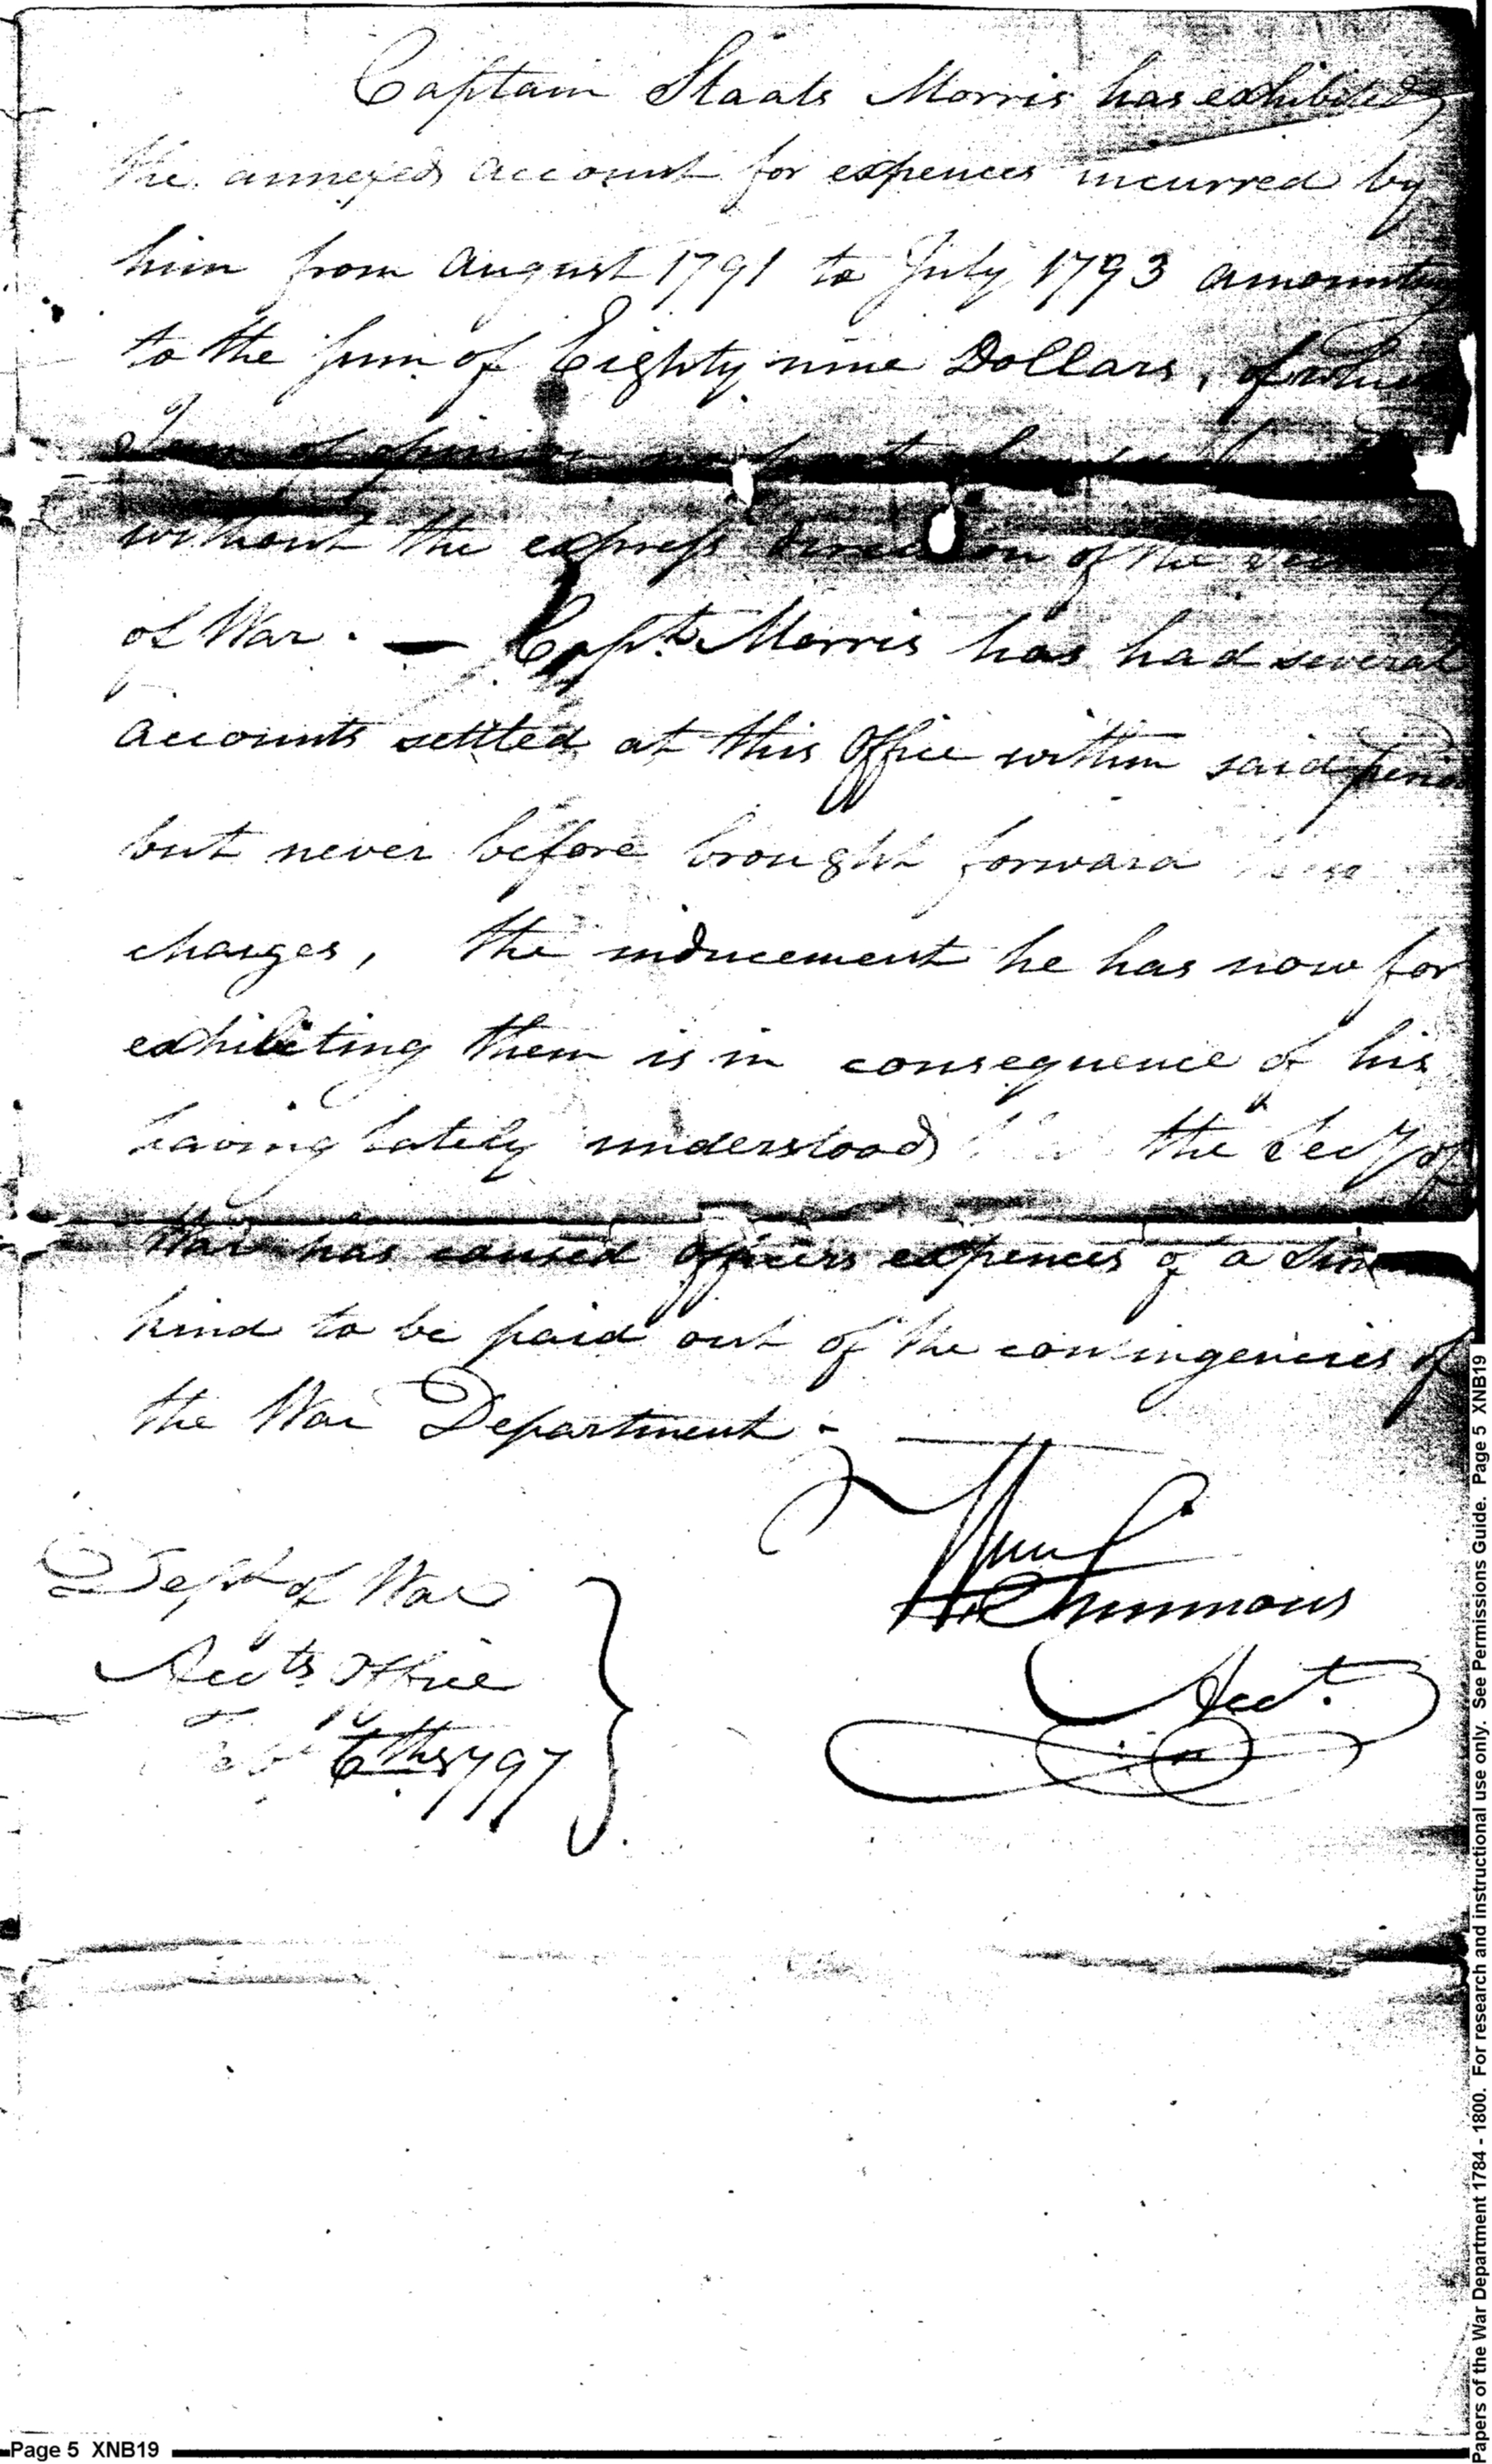 Captain Staats Morris has exhibited
the annexed account for expences incurred by
him from August 1791 to July 1793 amounting
to the sum of Eighty nine Dollars, of which
I am of opinion no part
without the express direction of the
of War. — Capt. Morris has had several
accounts settled at this Office within said period
but never before brought forward
charges, the inducement he has now for
exhibiting them is in consequence of his
having lately understood the Secy of
War has caused officers expences of a
kind to be paid out of the contingencies of
the War Department. —
Wm Simmons
Acct.
Dept of War
Accts Office
Feby 6th 1797
Page 5 XNB19
Papers of the War Department 1784 - 1800. For research and instructional use only. See Permissions Guide. Page 5 XNB19